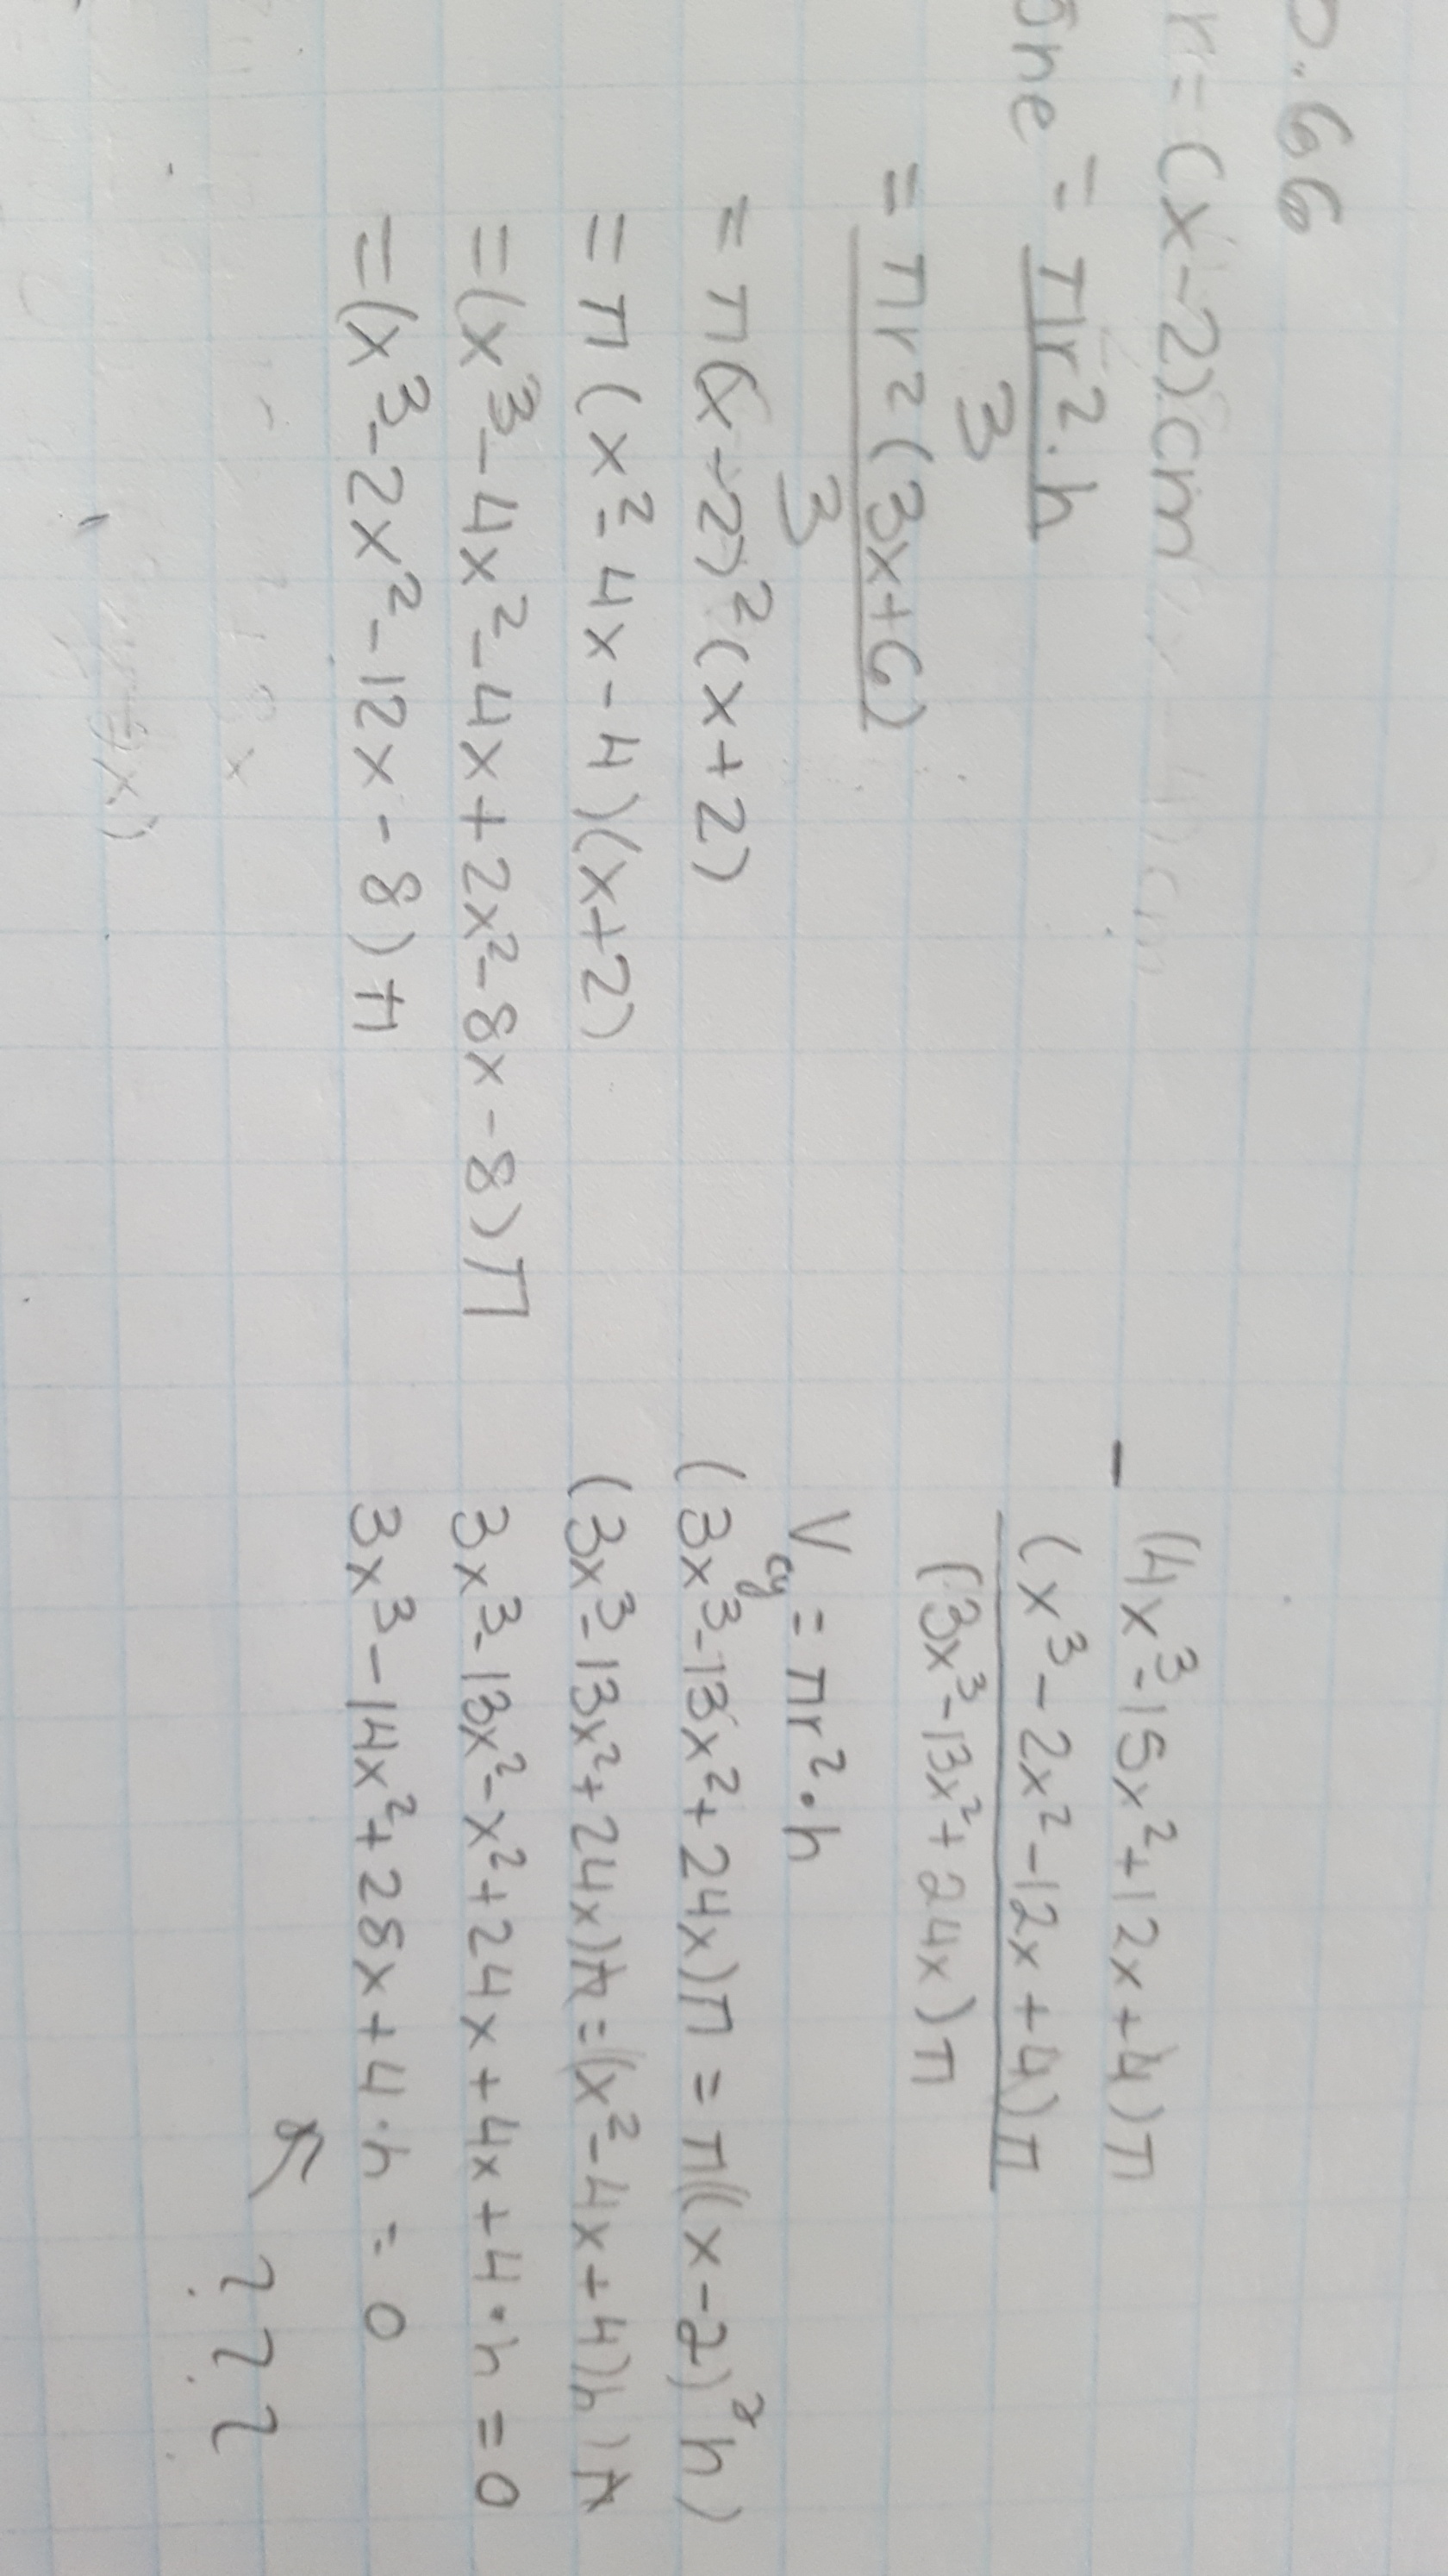 p.66
r = (x-2)cm
ône = πr²·h
3
= πr²(3x+6)
3
= π(x-2)²(x+2)
= π(x²-4x-4)(x+2)
= (x³-4x²-4x+2x²-8x-8)π
= (x³-2x²-12x-8)π
- (4x³-15x²+12x+4)π
(x³-2x²-12x+4)π
(3x³-13x²+24x)π
Vcy = πr²·h
(3x³-13x²+24x)π = π((x-2)²h)
(3x³-13x²+24x)π = ((x²-4x+4)h)π
3x³-13x²-x²+24x+4x+4·h = 0
3x³-14x²+28x+4·h = 0
???